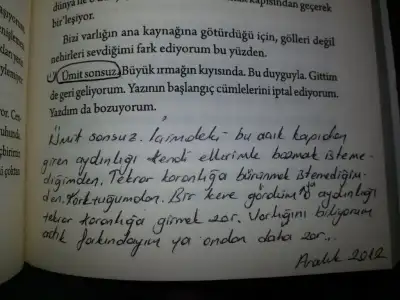 dünya ile o kapısından geçerek
bir'leşiyor.
Bizi varlığın ana kaynağına götürdüğü için, gölleri değil
nehirleri sevdiğimi fark ediyorum bu yüzden.
Ümit sonsuz. Büyük ırmağın kıyısında. Bu duyguyla. Gittim
de geri geliyorum. Yazının başlangıç cümlelerini iptal ediyorum.
Yazdım da bozuyorum.
Ümit sonsuz. İçimdeki - bu açık kapıdan
giren aydınlığı kendi ellerimle bozmak isteme-
diğimden. Tekrar karanlığa bürünmek istemediğim-
den. Korktuğumdan. Bir kere gördüm aydınlığı
tekrar karanlığa girmek zor. Varlığını biliyorum
artık farkındayım ya ondan daha zor...
Aralık 2012